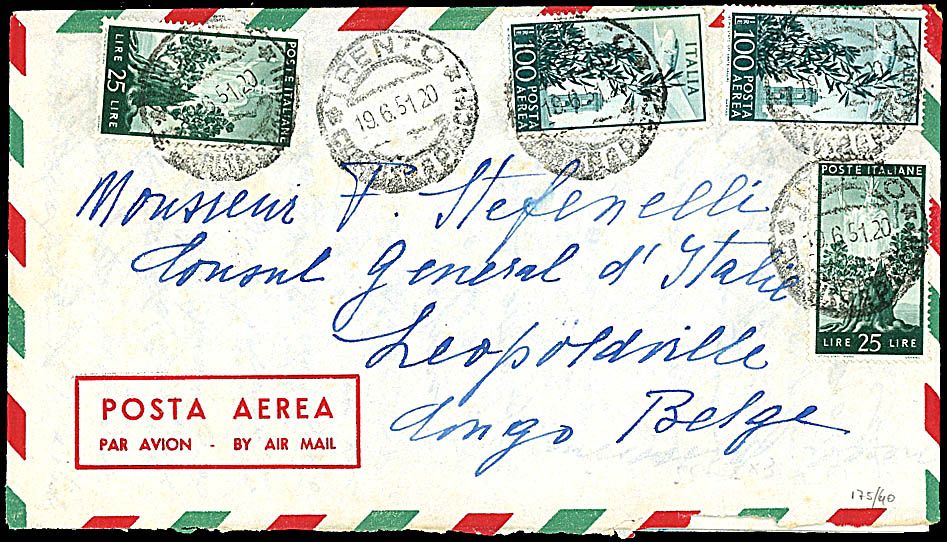 POSTE ITALIANE
LIRE 25 LIRE
TRENTO
19.6.51.20
ITALIA
100 POSTA AEREA
100 POSTA AEREA
POSTE ITALIANE
19.6.51.20
LIRE 25 LIRE
Monsieur F. Stefenelli
Consul General d'Italie
Leopoldville
Congo Belge
POSTA AEREA
PAR AVION - BY AIR MAIL
175/40